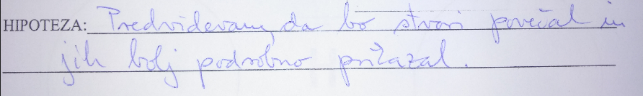 HIPOTEZA: Predvidevam, da bo stvari povečal in
jih bolj podrobno prikazal.